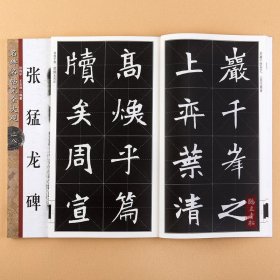 巖千峯之
上弈葉清
高煥乎篇
牘矣周宣
张猛龙碑